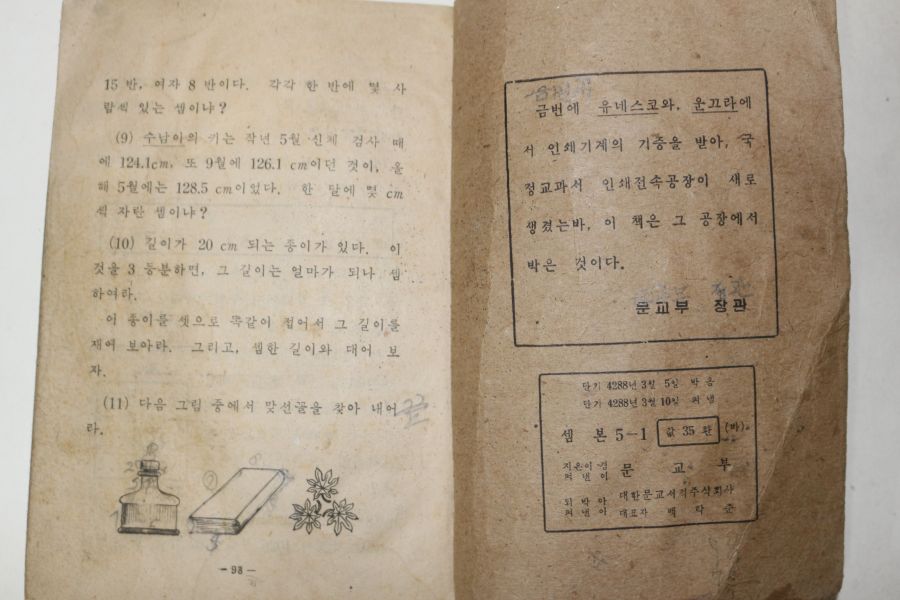 15 반, 여자 8 반이다. 각각 한 반에 몇 사
람씩 있는 셈이냐?
(9) 수남이의 키는 작년 5월 신체 검사 때
에 124.1cm, 또 9월에 126.1 cm이던 것이, 올
해 5월에는 128.5 cm이었다. 한 달에 몇 cm
씩 자란 셈이냐?
(10) 길이가 20 cm 되는 종이가 있다. 이
것을 3 등분하면, 그 길이는 얼마가 되나 셈
하여라.
이 종이를 셋으로 똑같이 접어서 그 길이를
재어 보아라. 그리고, 셈한 길이와 대어 보
자.
(11) 다음 그림 중에서 맞선꼴을 찾아 내어
라.
- 93 -
금번에 유네스코와, 운끄라에
서 인쇄기계의 기증을 받아, 국
정교과서 인쇄전속공장이 새로
생겼는바, 이 책은 그 공장에서
박은 것이다.
문교부 장관
단기 4288년 3월 5일 박음
단기 4288년 3월 10일 펴냄
셈 본 5-1 값 35 환 (바)
지은이 겸
펴낸이 문 교 부
되박아
펴낸이 대한문교서적주식회사
대표자 백 낙 준